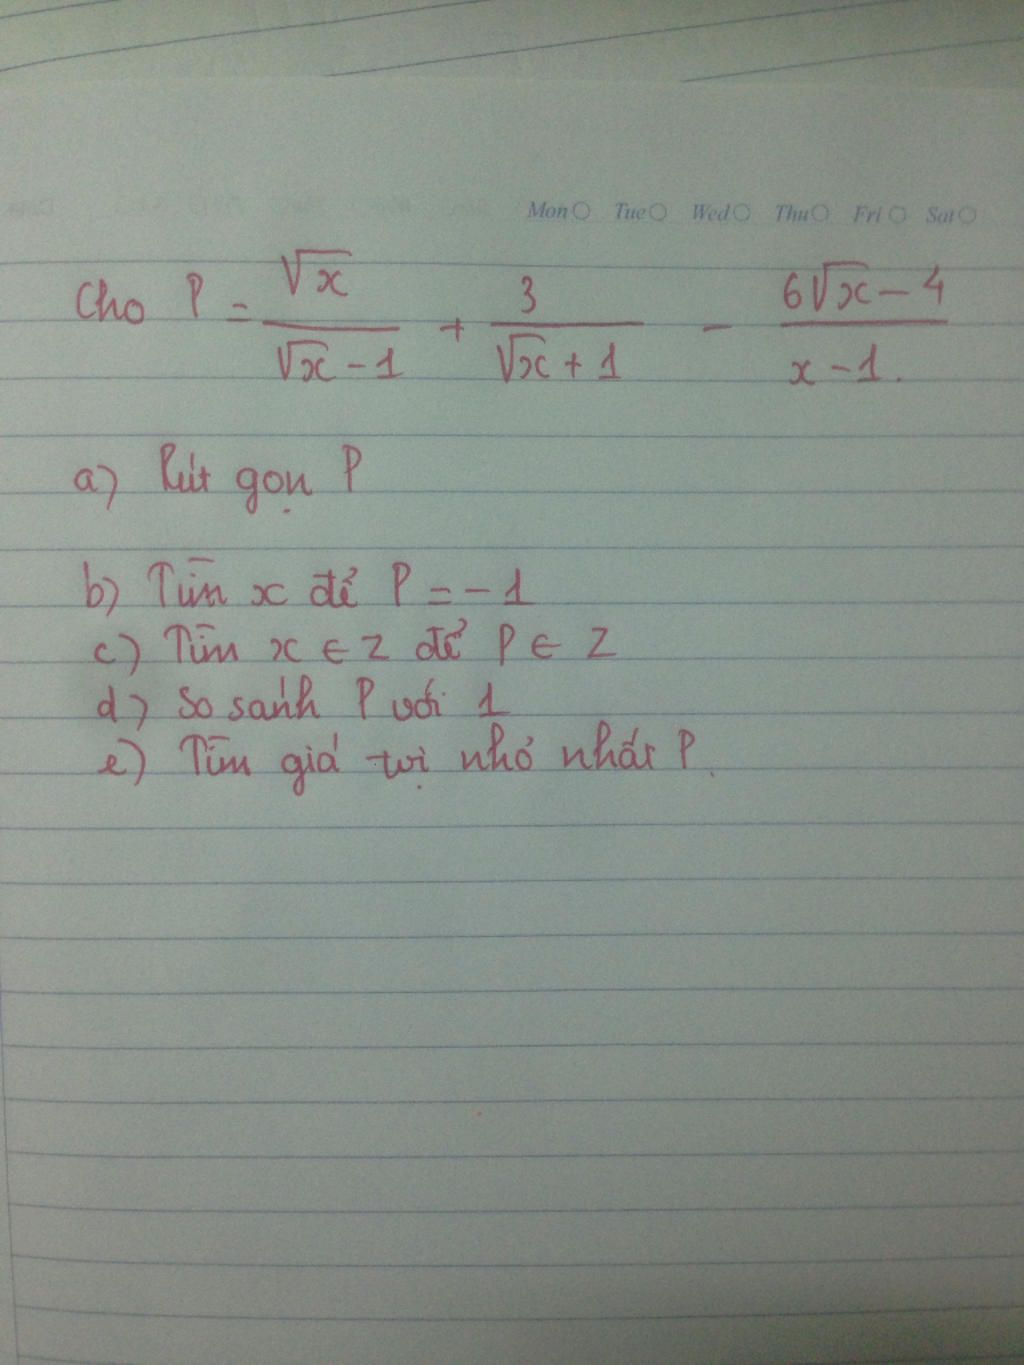 Mon Tue Wed Thu Fri Sat
Cho P = √x / (√x - 1) + 3 / (√x + 1) - (6√x - 4) / (x - 1).
a) Rút gọn P
b) Tìm x để P = -1
c) Tìm x ∈ Z để P ∈ Z
d) So sánh P với 1
e) Tìm giá trị nhỏ nhất P.